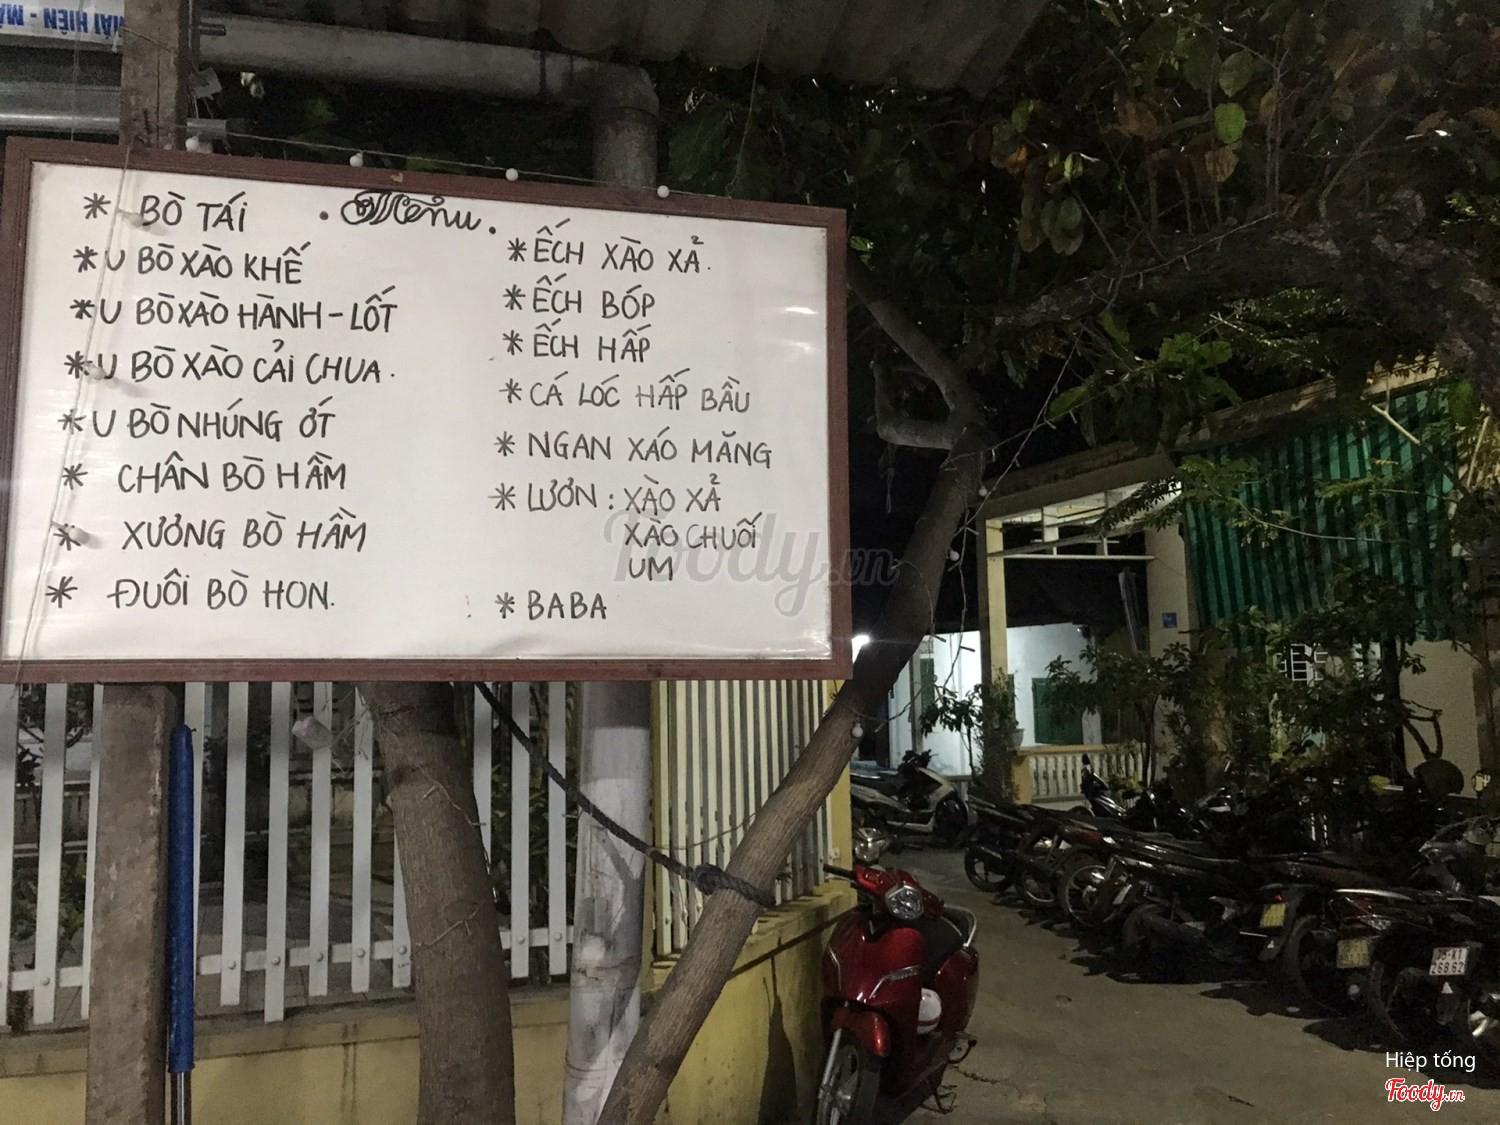 MÁI HIÊN - MÁ
Menu
* BÒ TÁI
* U BÒ XÀO KHẾ
* U BÒ XÀO HÀNH - LỐT
* U BÒ XÀO CẢI CHUA.
* U BÒ NHÚNG ỚT
* CHÂN BÒ HẦM
* XƯỞNG BÒ HẦM
* ĐUÔI BÒ HON.
* ẾCH XÀO XẢ.
* ẾCH BÓP
* ẾCH HẤP
* CÁ LÓC HẤP BẦU
* NGAN XÁO MĂNG
* LƯƠN: XÀO XẢ
XÀO CHUỐI
UM
* BABA
Foody.vn
268 62
Hiệp tống
Foody.vn